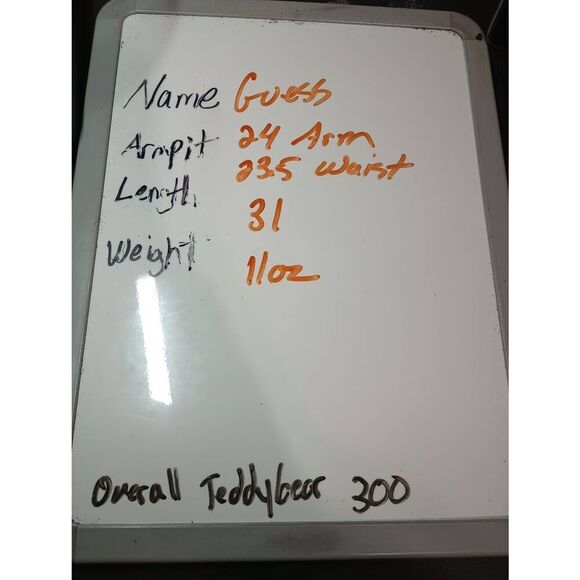 Name Guess
Armpit 24 Arm
23.5 Waist
Length 31
Weight 11oz
Overall Teddybear 300